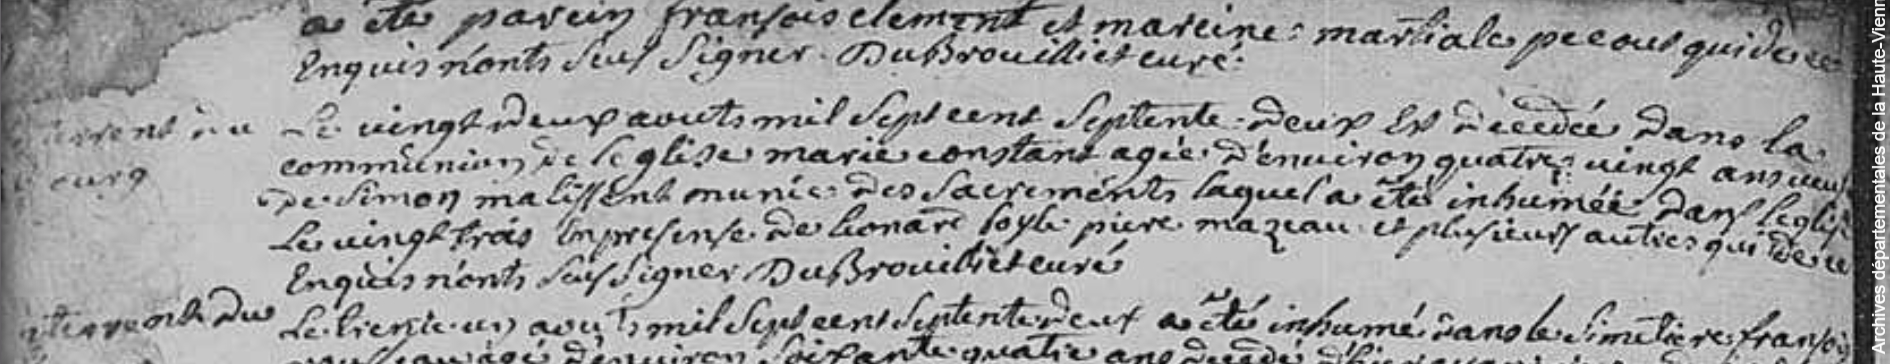 a été parein fransois clement et mareine martiale pecout qui de ce
Enquis n'onts seut signer DuBrouilliet curé
bourg
Le vingt deux aouts mil sept cent septente deux Est décédée dans la
communion de leglise marie constant agée d'environ quatre vingt ans veuve
de simon malissent munie des sacrements laquel a été inhumée dans leglise
Le vingt trois Enpresense de lionard pierre mazeau et plusieurs autres qui de ce
Enquis n'onts seut signer DuBrouilliet curé
enterrement du
Le trente un aouts mil sept cent septente deux a été inhumé dans le simetiere fransois
agé d'environ soixante quatre ans décédé
Archives départementales de la Haute-Vienne